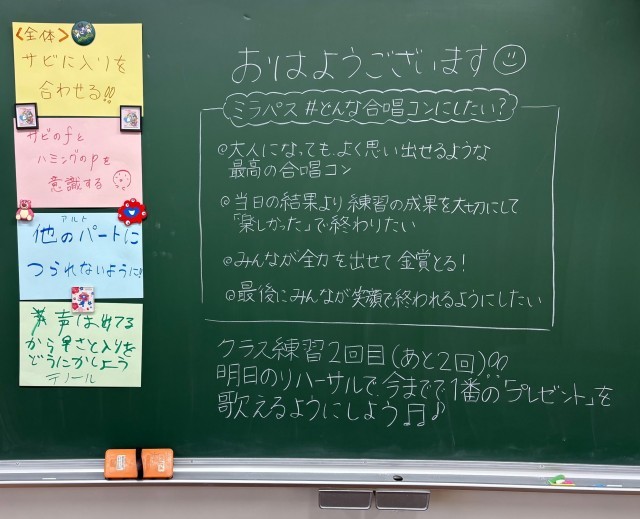 <全体>
サビに入りを
合わせる!!
サビのfと
ハミングのpを
意識する
アルト
他のパートに
つられないように!!
声は出てる
から早さと入りを
どうにかしよう
テノール
おはようございます
ミラパス #どんな合唱コンにしたい?
◎大人になっても、よく思い出せるような
最高の合唱コン
◎当日の結果より練習の成果を大切にして
「楽しかった」で終わりたい
◎みんなが全力を出せて金賞とる!
◎最後にみんなが笑顔で終われるようにしたい
クラス練習2回目(あと2回)!!
明日のリハーサルで、今までで1番の「プレゼント」を
歌えるようにしよう♫♪